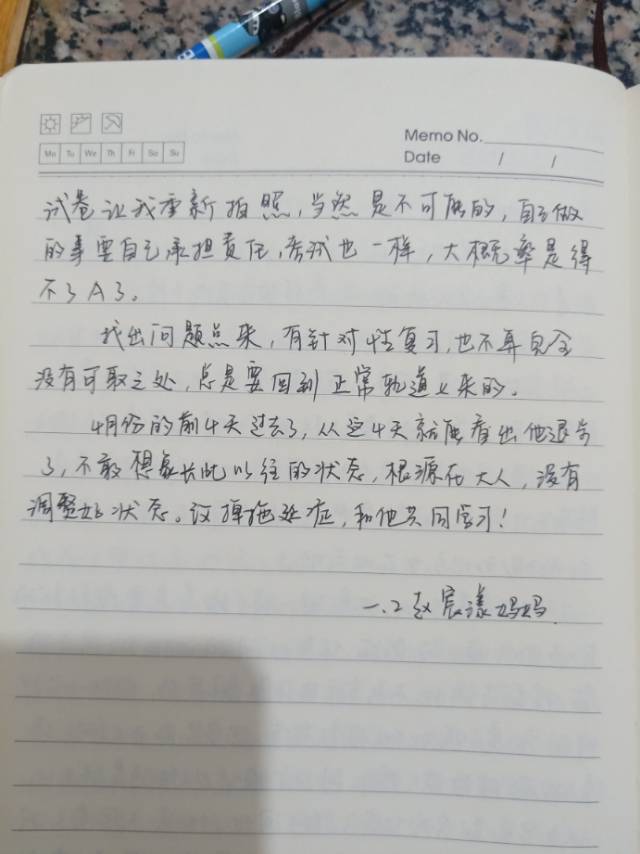 Memo No.
Mo Tu We Th Fr Sa Su
Date / /
试卷让我重新拍照，当然是不可能的，自己做
的事要自己承担责任，考试也一样，大概率是得
不了A了。
找出问题点来，有针对性复习，也不再完全
没有可取之处，总是要回到正常轨道上来的。
4月份的前4天过去了，从这4天就能看出他退步
了，不敢想象长此以往的状态，根源在大人，没有
调整好状态。改掉拖延症，和他共同学习！
一.2 赵宸漾妈妈